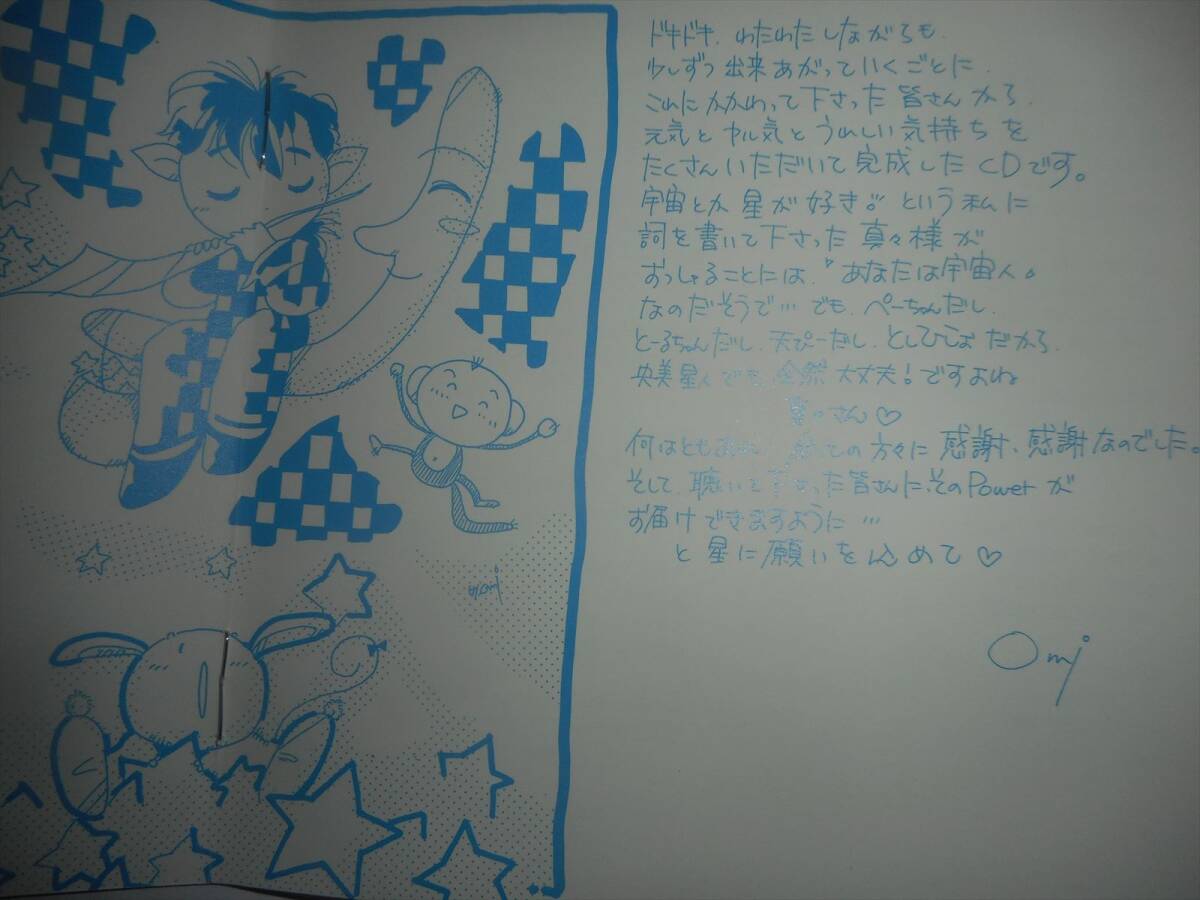 ドキドキ、わたわたしながらも、
少しずつ出来あがっていくごとに、
これにかかわって下さった皆さんから、
元気とヤル気とうれしい気持ちを
たくさんいただいて完成したCDです。
宇宙とか星が好き。という私に
詞を書いて下さった真々様が
おっしゃることには『あなたは宇宙人』
なのだそうで…でも、ぺーちゃんだし、
とーるちゃんだし、天ぴーだし、としひこだから、
央美星人でも、全然大丈夫！ですよね
さん♡
何はともあれ、全ての方々に感謝、感謝なのでした。
そして、聴いて下さった皆さんに、そのPowerが
お届けできますように…
と星に願いを込めて♡
Omi
omi